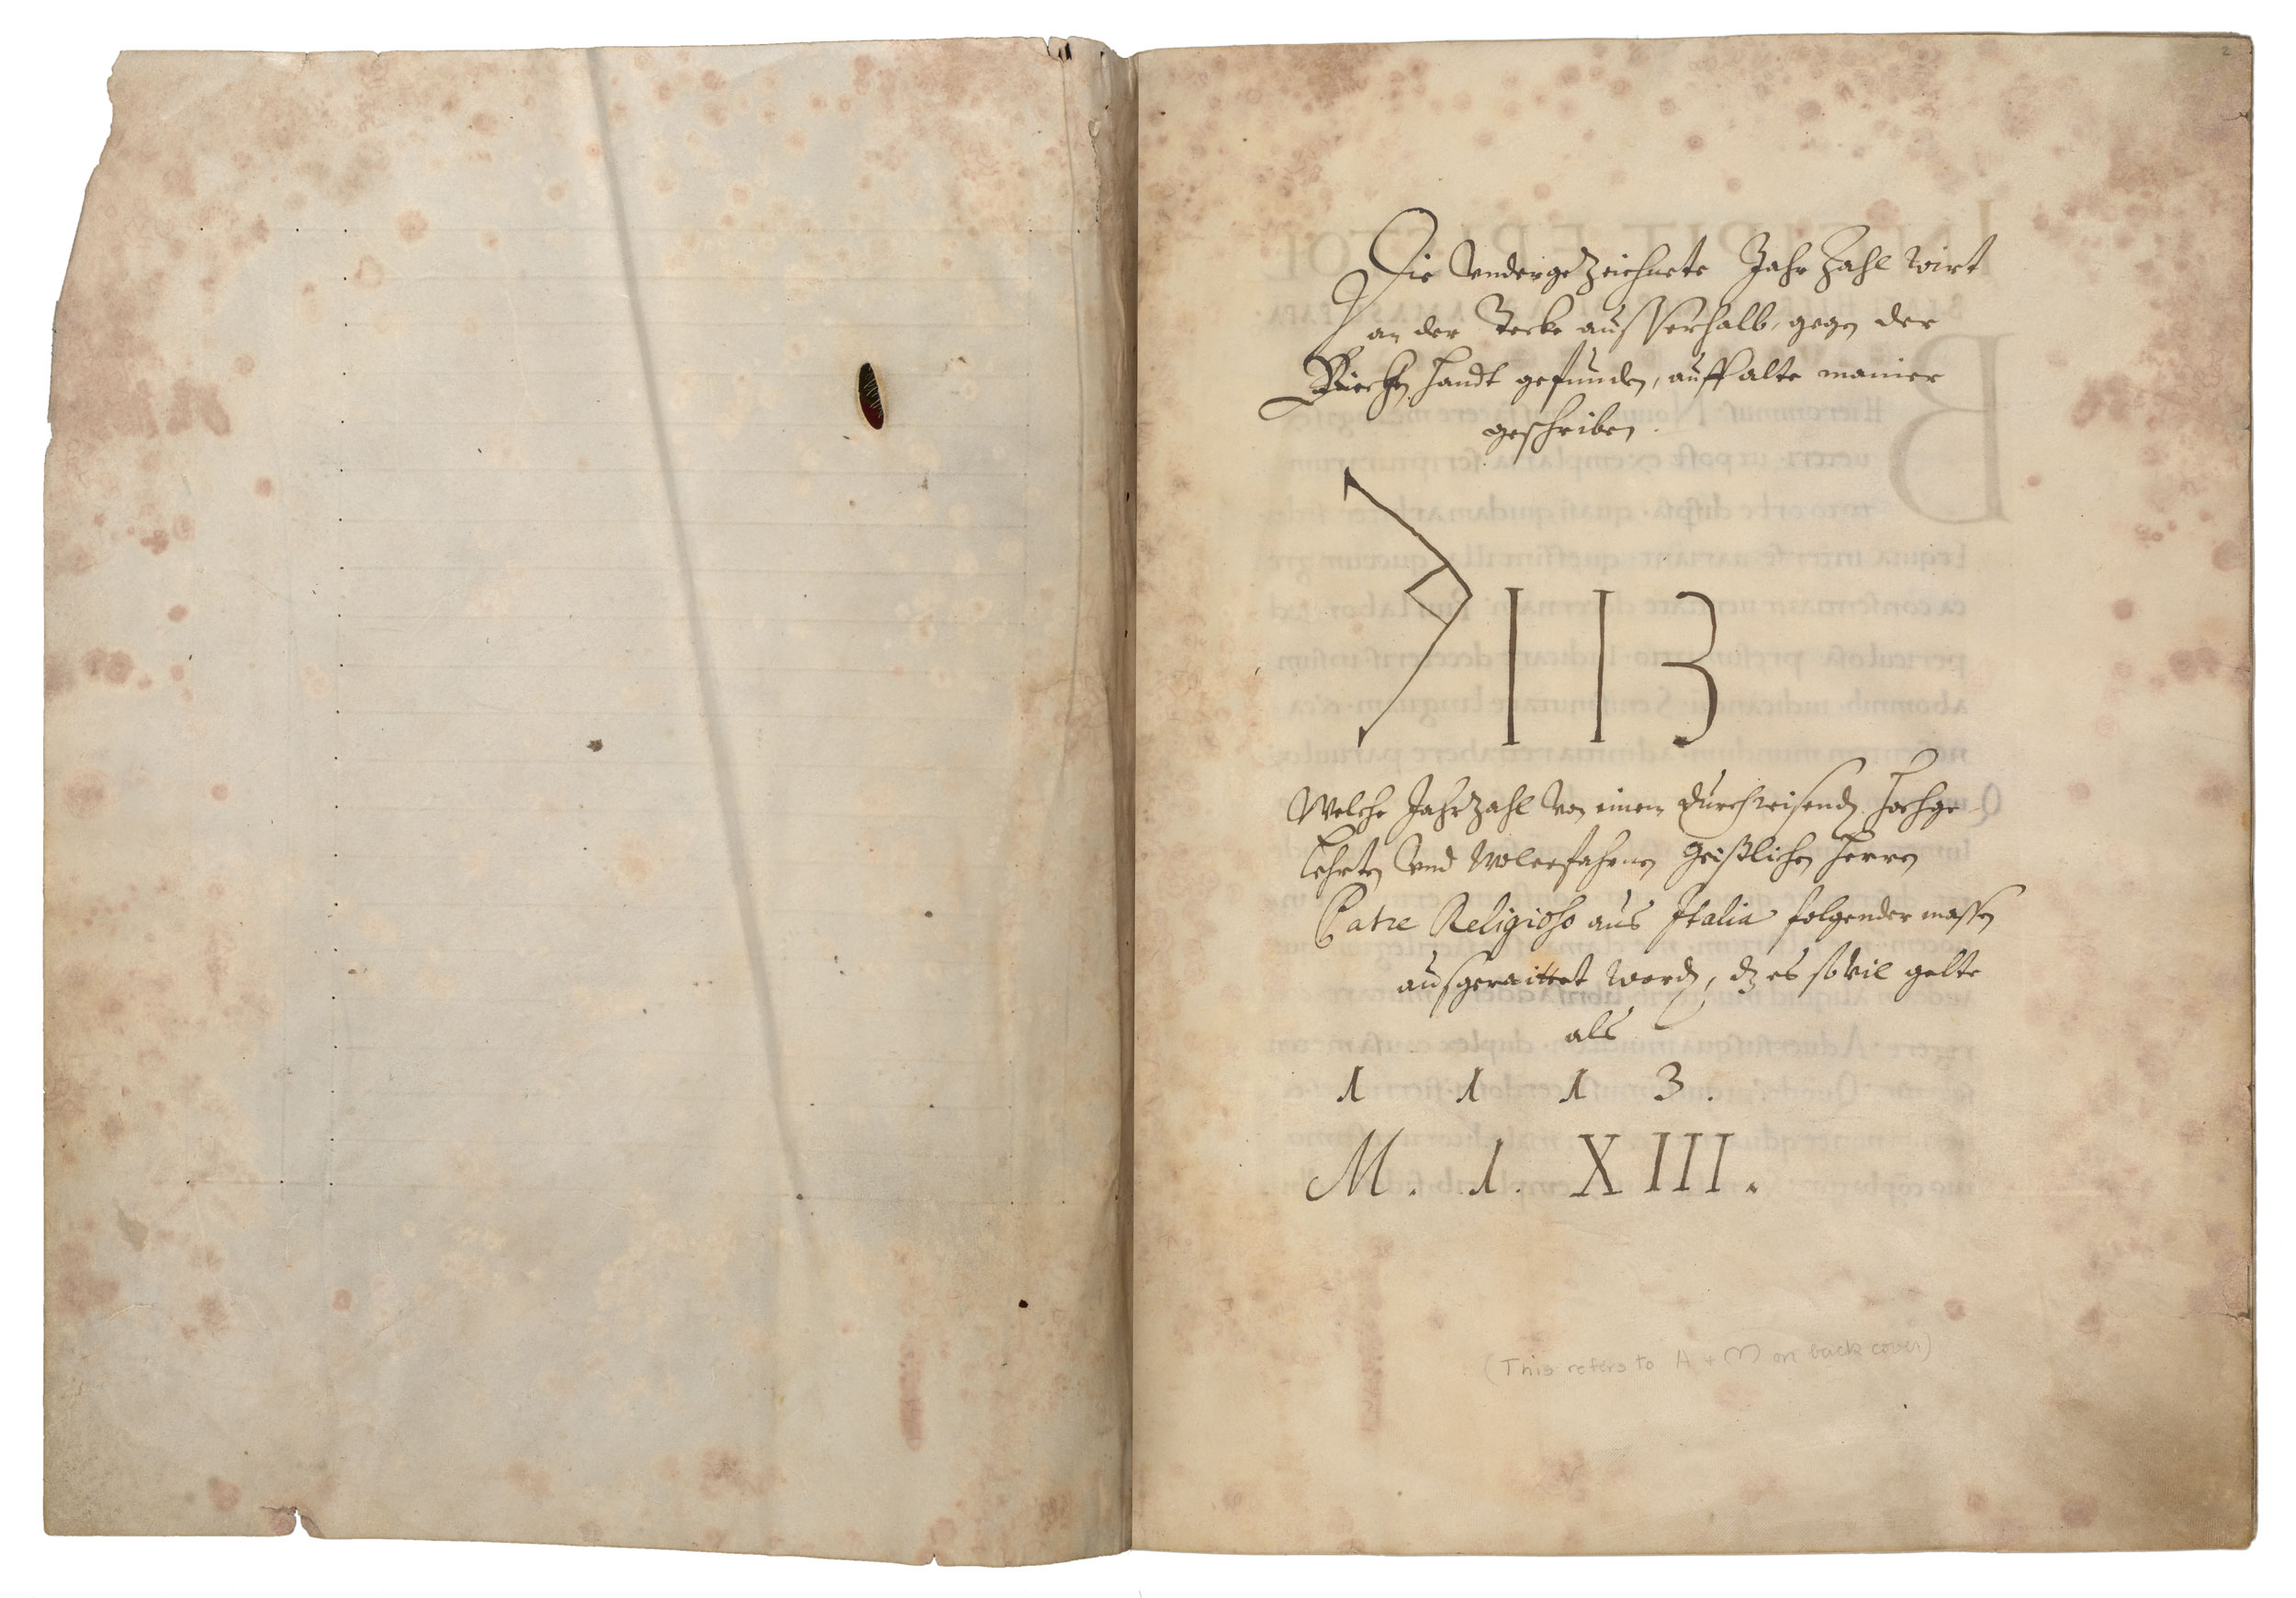 2
Die Vndergezeichnete Jahr Zahl wirt
an der Tecke ausserhalb, gegen der
handt gefunden, auff alte manier
geschriben.
113
Welche Jahrzahl von einem durchreisenden Hochge-
lehrten Vnd Wolerfahrnen Geistlichen Herren
Patre Religioso aus Italia folgender massen
ausgeraittet worden, dz es so vil gelte
als
1 1 1 3.
M. 1. XIII.
(This refers to A + M on back cover)